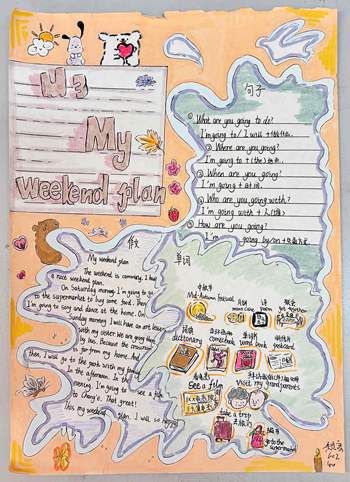 U3
My
weekend plan
句子
① What are you going to do?
I'm going to / I will +
② Where are you going?
I'm going to + (the) +
③ When are you going?
I'm going + at
④ Who are you going with?
I'm going with + 人
⑤ How are you going?
I'm going by/on +
作文
My weekend plan
The weekend is coming. I have
a nice weekend plan.
On Saturday morning I'm going to go
to the supermarket to buy some food. Then
I'm going to sing and dance at the home. On
Sunday morning I will have an art lesson
with my sister. We are going there
by bus. Because the
far from my home. And
then, I will go to the park with my family
In the afternoon. In the
evening, I'm going to see a film
to Chang'e. That great!
This my weekend
plan. I will so happy!
单词
中秋节
Mid-Autumn Festival
月饼
moon cake
诗
poem
聚会
get together
词典
dictionary
comic book
单词书
word book
明信片
postcard
看电影
See a film
visit my grandparents
take a trip
去旅行
go to the
supermarket
602